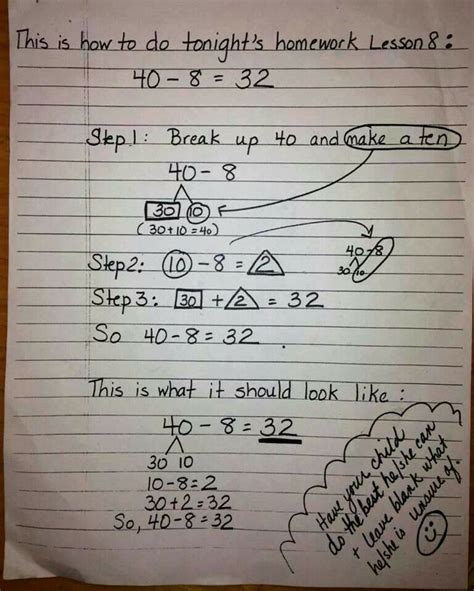 This is how to do tonight's homework Lesson 8:
40 - 8 = 32
Step 1: Break up 40 and make a ten
40 - 8
30 10
(30 + 10 = 40)
Step 2: 10 - 8 = 2
40 - 8
30 10
Step 3: 30 + 2 = 32
So 40 - 8 = 32
This is what it should look like:
40 - 8 = 32
30 10
10 - 8 = 2
30 + 2 = 32
So, 40 - 8 = 32
Have your child
do the best he/she can
+ leave blank what
he/she is unsure of.